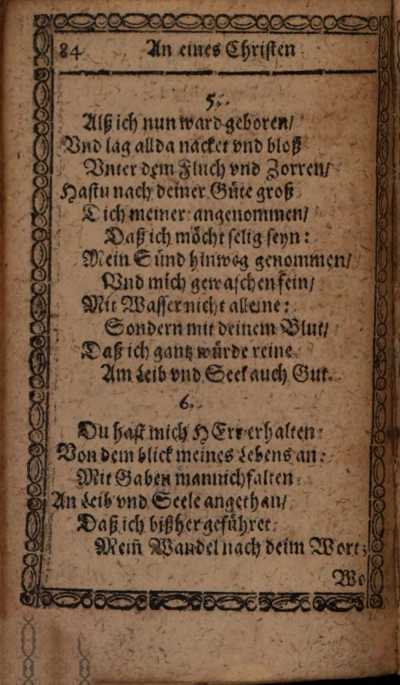 84 An eines Christen
5.
Alß ich nun ward geboren/
Vnd lag allda nacket vnd bloß
Vnter dem Fluch vnd Zorren/
Hastu nach deiner Güte groß
Dich meiner angenommen/
Daß ich möcht selig seyn:
Mein Sünd hinweg genommen/
Vnd mich gewaschen fein/
Mit Wasser nicht alleine:
Sondern mit deinem Blut/
Daß ich gantz würde reine
Am Leib vnd Seel auch Gut.
6.
Du hast mich HErr erhalten
Von dem blick meines Lebens an:
Mit Gaben mannichfalten
An Leib vnd Seele angethan/
Daß ich bißher geführet
Mein̄ Wandel nach deim Wort;
Wo